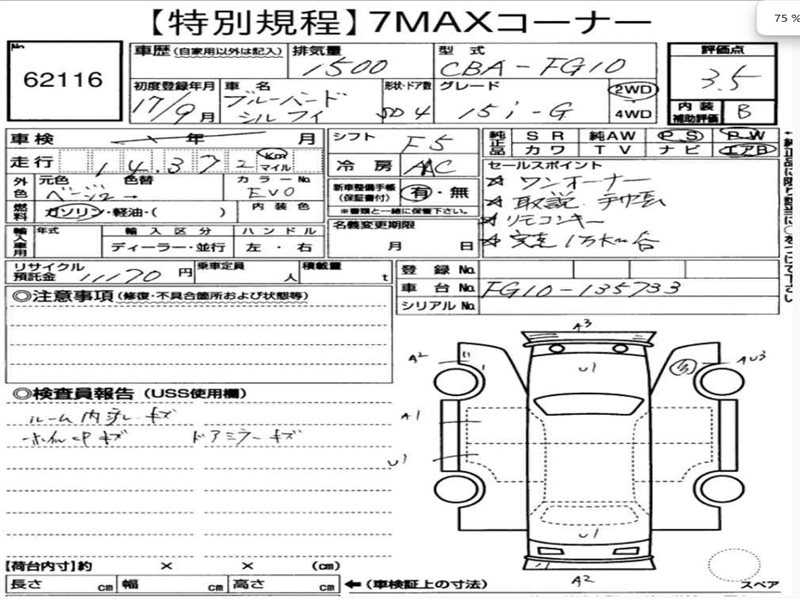 75 %
【特別規程】7MAXコーナー
No
62116
車歴 (自家用以外は記入)
排気量
1500
型式
CBA-FG10
評価点
3.5
内装補助評価
B
初度登録年月
17/9月
車名
ブルーバード
シルフィ
形状・ドア数
SD 4
グレード
15i-G
2WD
4WD
車検 年 月
走行 14372 Km マイル
シフト
F5
冷房
AAC
純正品
SR 純AW PS PW
カワ TV ナビ エアB
セールスポイント
☆ ワンオーナー
☆ 取説
☆ リモコンキー
☆ 実走1万km台
外色
元色 色替
ベージュー
カラーNo
EV0
新車整備手帳(保証書付) 有・無
※書類と一緒に保管下さい。
燃料 ガソリン・軽油・( )
内装色
名義変更期限
月 日
輸入車用
年式
輸入区分
ハンドル
ディーラー・並行
左・右
リサイクル預託金 11170 円
乗車定員 人
積載量 t
登録 No.
車台 No. FG10-135733
シリアル No.
◎注意事項(修復・不具合箇所および状態等)
◎検査員報告(USS使用欄)
ルーム内汚レ キズ
ドアミラーキズ
A3
A2
U1
AU3
A1
U1
U1
A2
【荷台内寸】約 × × (cm)
長さ cm 幅 cm 高さ cm
←(車検証上の寸法)
スペア